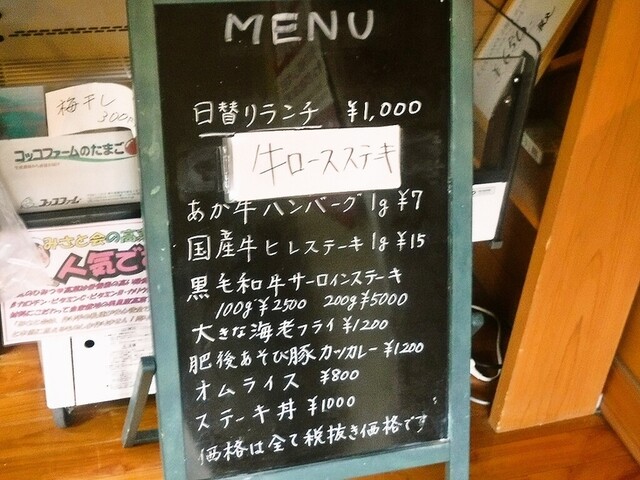 MENU
日替りランチ ¥1,000
牛ロースステーキ
あか牛ハンバーグ 1g ¥7
国産牛ヒレステーキ 1g ¥15
黒毛和牛サーロインステーキ
100g ¥2500 200g ¥5000
大きな海老フライ ¥1200
肥後あそび豚カツカレー ¥1200
オムライス ¥800
ステーキ丼 ¥1000
価格は全て税抜き価格です
梅干し
300円
コッコファームのたまご
コッコファーム
みさと会の高
人気で